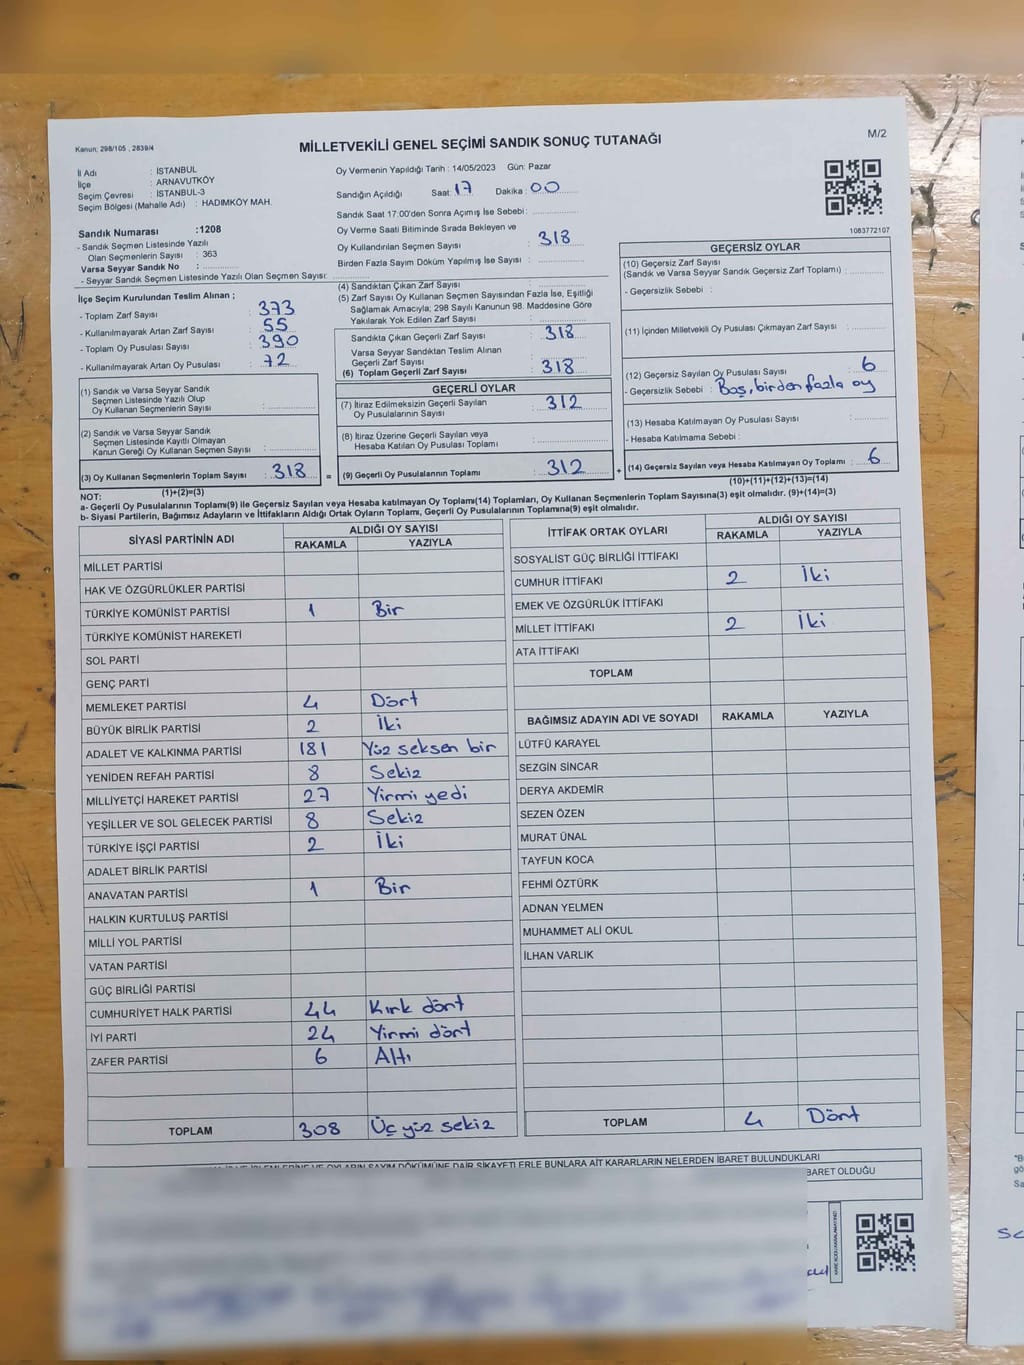 Kanun; 298/105 , 2839/4
MİLLETVEKİLİ GENEL SEÇİMİ SANDIK SONUÇ TUTANAĞI
M/2
İl Adı : İSTANBUL
İlçe : ARNAVUTKÖY
Seçim Çevresi : İSTANBUL-3
Seçim Bölgesi (Mahalle Adı) : HADIMKÖY MAH.
Sandık Numarası :1208
- Sandık Seçmen Listesinde Yazılı
Olan Seçmenlerin Sayısı : 363
Varsa Seyyar Sandık No :
- Seyyar Sandık Seçmen Listesinde Yazılı Olan Seçmen Sayısı:
Oy Vermenin Yapıldığı Tarih : 14/05/2023 Gün: Pazar
Sandığın Açıldığı Saat 17 Dakika : 00
Sandık Saat 17:00'den Sonra Açımış İse Sebebi :
Oy Verme Saati Bitiminde Sırada Bekleyen ve
Oy Kullandırılan Seçmen Sayısı : 318
Birden Fazla Sayım Döküm Yapılmış İse Sayısı :
1083772107
İlçe Seçim Kurulundan Teslim Alınan ;
- Toplam Zarf Sayısı : 373
- Kullanılmayarak Artan Zarf Sayısı : 55
- Toplam Oy Pusulası Sayısı : 390
- Kullanılmayarak Artan Oy Pusulası : 72
(1) Sandık ve Varsa Seyyar Sandık
Seçmen Listesinde Yazılı Olup
Oy Kullanan Seçmenlerin Sayısı :
(2) Sandık ve Varsa Seyyar Sandık
Seçmen Listesinde Kayıtlı Olmayan
Kanun Gereği Oy Kullanan Seçmen Sayısı :
(3) Oy Kullanan Seçmenlerin Toplam Sayısı : 318 =
(1)+(2)=(3)
(4) Sandıktan Çıkan Zarf Sayısı :
(5) Zarf Sayısı Oy Kullanan Seçmen Sayısından Fazla İse, Eşitliği
Sağlamak Amacıyla; 298 Sayılı Kanunun 98. Maddesine Göre
Yakılarak Yok Edilen Zarf Sayısı :
Sandıkta Çıkan Geçerli Zarf Sayısı : 318
Varsa Seyyar Sandıktan Teslim Alınan
Geçerli Zarf Sayısı :
(6) Toplam Geçerli Zarf Sayısı : 318
GEÇERLİ OYLAR
(7) İtiraz Edilmeksizin Geçerli Sayılan
Oy Pusulalarının Sayısı : 312
(8) İtiraz Üzerine Geçerli Sayılan veya
Hesaba Katılan Oy Pusulası Toplamı :
(9) Geçerli Oy Pusulalarının Toplamı : 312 +
GEÇERSİZ OYLAR
(10) Geçersiz Zarf Sayısı
(Sandık ve Varsa Seyyar Sandık Geçersiz Zarf Toplamı) :
- Geçersizlik Sebebi :
(11) İçinden Milletvekili Oy Pusulası Çıkmayan Zarf Sayısı :
(12) Geçersiz Sayılan Oy Pusulası Sayısı : 6
- Geçersizlik Sebebi : Boş, birden fazla oy
(13) Hesaba Katılmayan Oy Pusulası Sayısı :
- Hesaba Katılmama Sebebi :
(14) Geçersiz Sayılan veya Hesaba Katılmayan Oy Toplamı : 6
(10)+(11)+(12)+(13)=(14)
NOT:
a- Geçerli Oy Pusulalarının Toplamı(9) ile Geçersiz Sayılan veya Hesaba katılmayan Oy Toplamı(14) Toplamları, Oy Kullanan Seçmenlerin Toplam Sayısına(3) eşit olmalıdır. (9)+(14)=(3)
b- Siyasi Partilerin, Bağımsız Adayların ve İttifakların Aldığı Ortak Oyların Toplamı, Geçerli Oy Pusulalarının Toplamına(9) eşit olmalıdır.
SİYASİ PARTİNİN ADI ALDIĞI OY SAYISI
RAKAMLA YAZIYLA
MİLLET PARTİSİ
HAK VE ÖZGÜRLÜKLER PARTİSİ
TÜRKİYE KOMÜNİST PARTİSİ 1 Bir
TÜRKİYE KOMÜNİST HAREKETİ
SOL PARTİ
GENÇ PARTİ
MEMLEKET PARTİSİ 4 Dört
BÜYÜK BİRLİK PARTİSİ 2 İki
ADALET VE KALKINMA PARTİSİ 181 Yüz seksen bir
YENİDEN REFAH PARTİSİ 8 Sekiz
MİLLİYETÇİ HAREKET PARTİSİ 27 Yirmi yedi
YEŞİLLER VE SOL GELECEK PARTİSİ 8 Sekiz
TÜRKİYE İŞÇİ PARTİSİ 2 İki
ADALET BİRLİK PARTİSİ
ANAVATAN PARTİSİ 1 Bir
HALKIN KURTULUŞ PARTİSİ
MİLLİ YOL PARTİSİ
VATAN PARTİSİ
GÜÇ BİRLİĞİ PARTİSİ
CUMHURİYET HALK PARTİSİ 44 Kırk dört
İYİ PARTİ 24 Yirmi dört
ZAFER PARTİSİ 6 Altı
TOPLAM 308 Üç yüz sekiz
İTTİFAK ORTAK OYLARI ALDIĞI OY SAYISI
RAKAMLA YAZIYLA
SOSYALİST GÜÇ BİRLİĞİ İTTİFAKI
CUMHUR İTTİFAKI 2 İki
EMEK VE ÖZGÜRLÜK İTTİFAKI
MİLLET İTTİFAKI 2 İki
ATA İTTİFAKI
TOPLAM
BAĞIMSIZ ADAYIN ADI VE SOYADI RAKAMLA YAZIYLA
LÜTFÜ KARAYEL
SEZGİN SİNCAR
DERYA AKDEMİR
SEZEN ÖZEN
MURAT ÜNAL
TAYFUN KOCA
FEHMİ ÖZTÜRK
ADNAN YELMEN
MUHAMMET ALİ OKUL
İLHAN VARLIK
TOPLAM 4 Dört
OYLARIN SAYIM DÖKÜMÜNE DAİR ŞİKAYETLERLE BUNLARA AİT KARARLARIN NELERDEN İBARET BULUNDUKLARI
BARET OLDUĞU